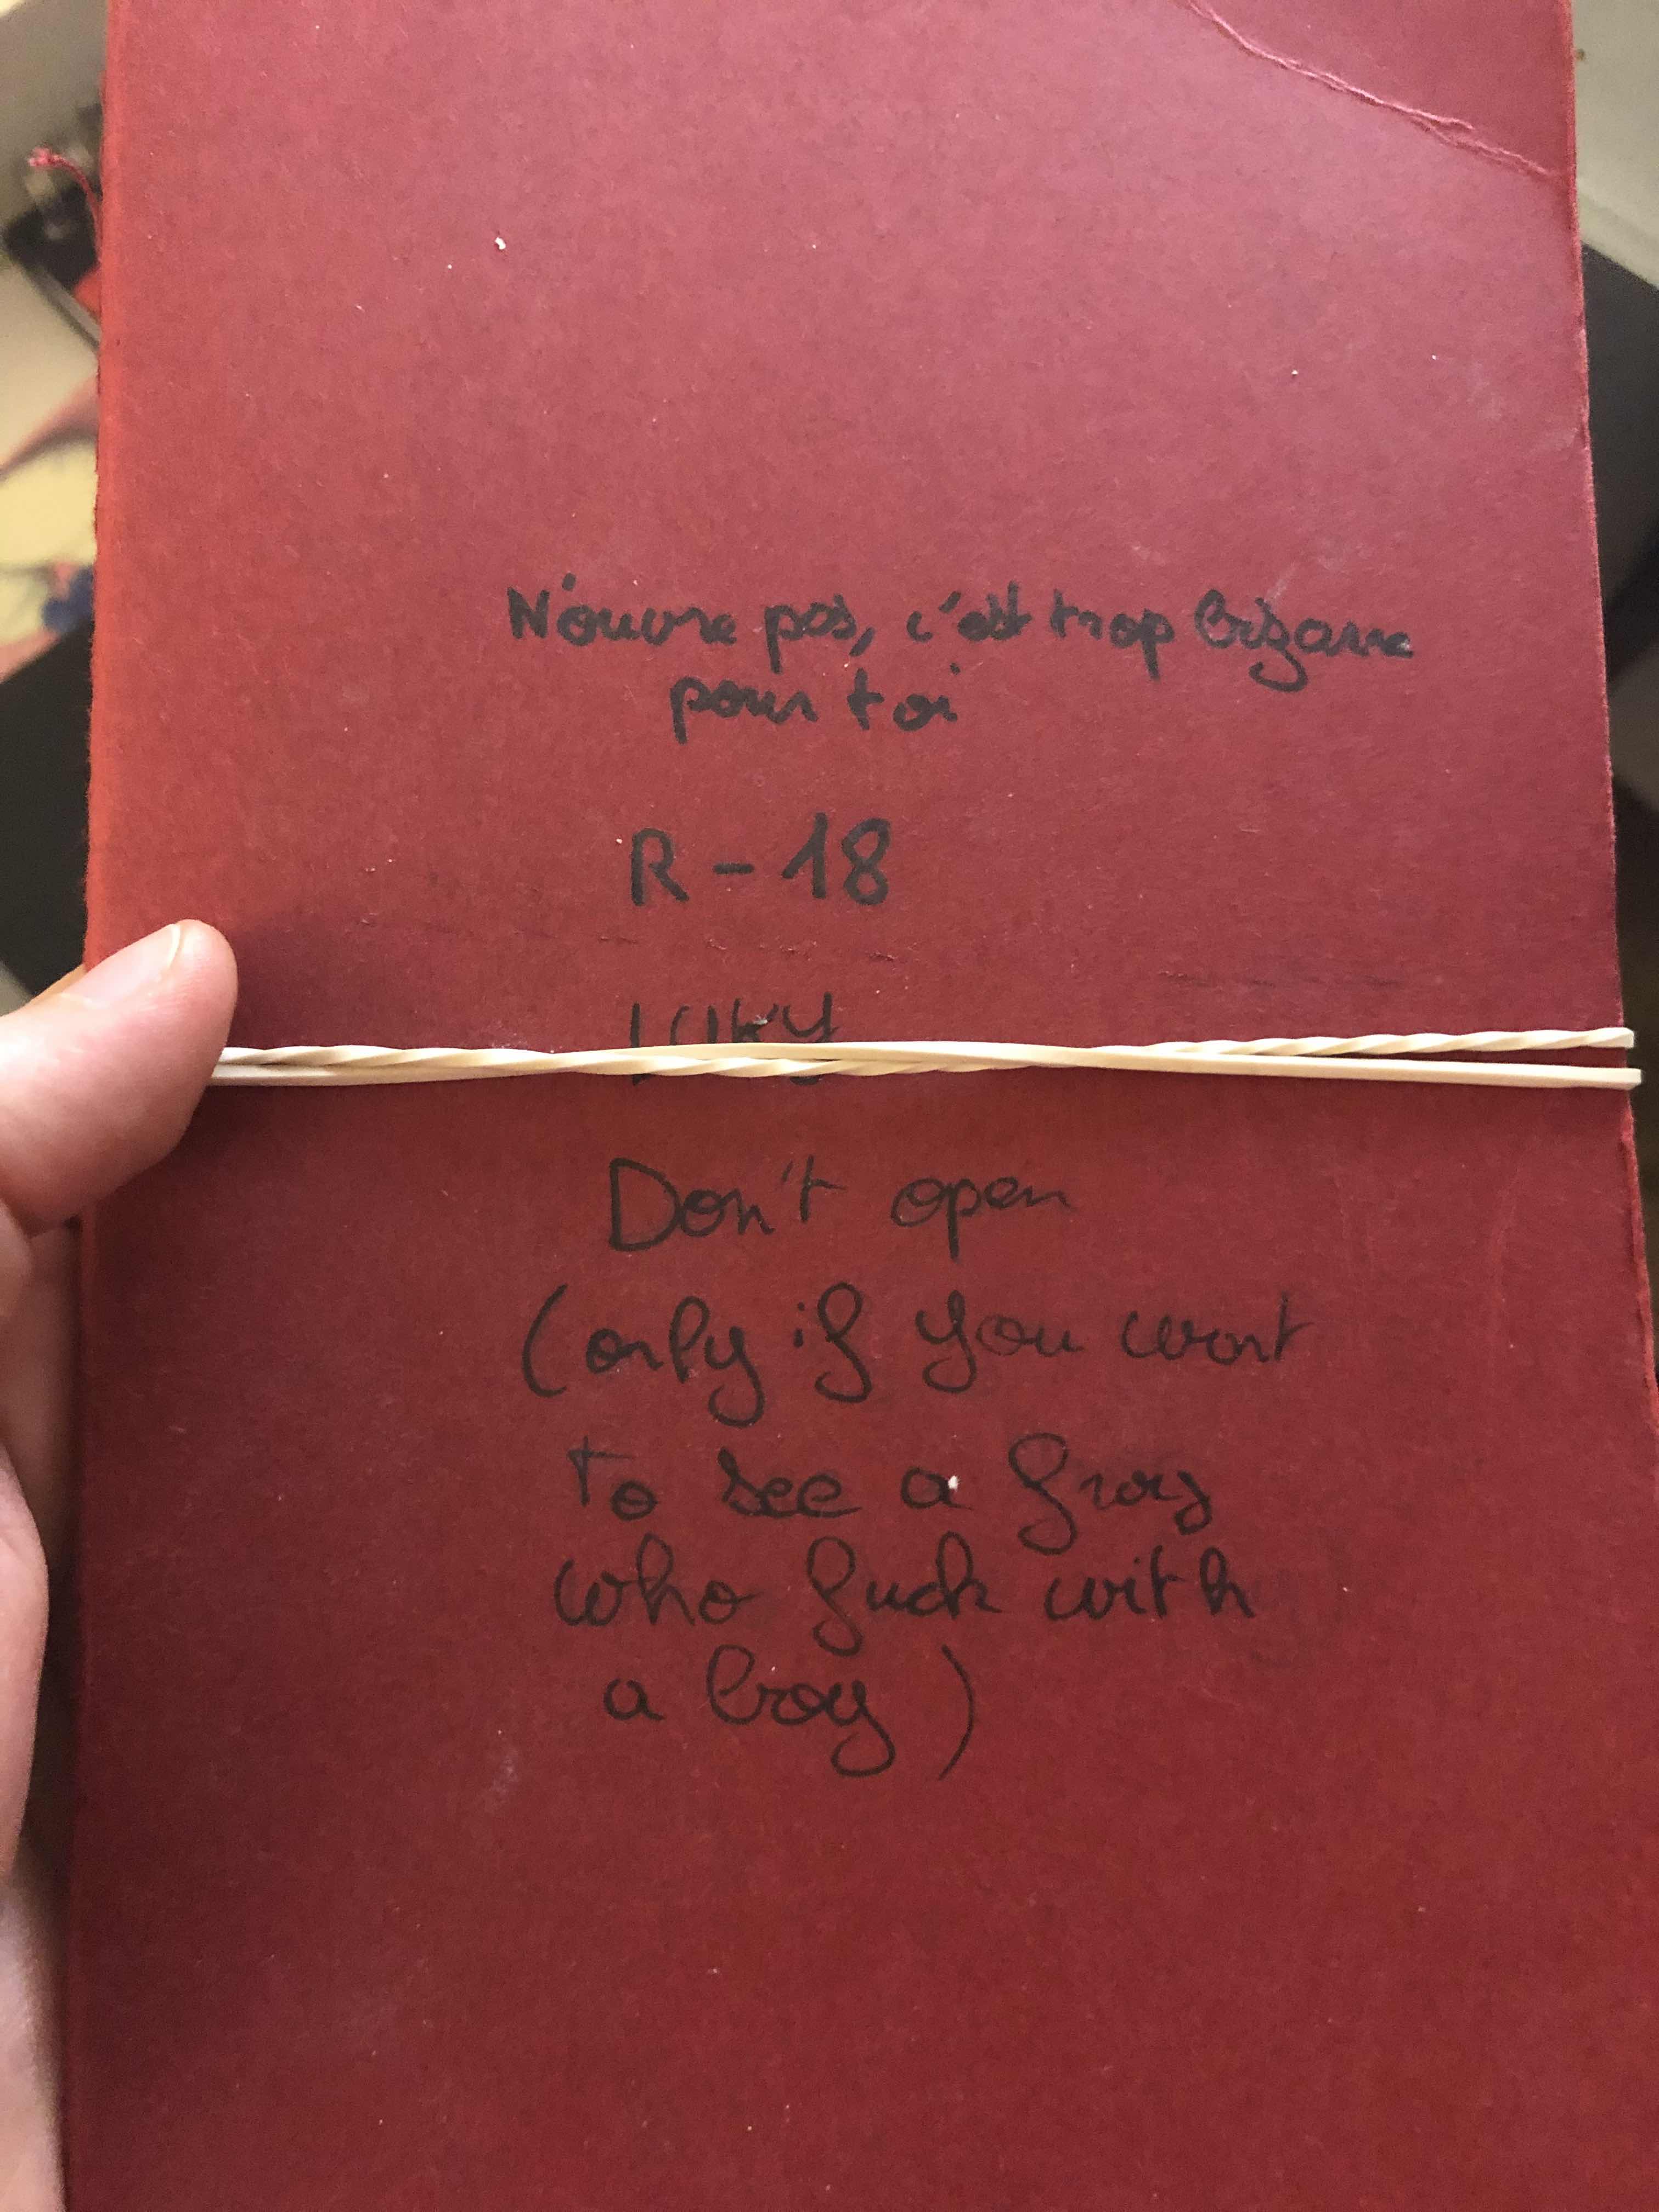 N'ouvre pas, c'est trop bizarre
pour toi
R - 18
Don't open
(only if you want
to see a frog
who fuck with
a boy)